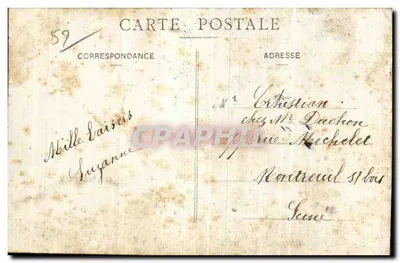 59
CARTE POSTALE
CORRESPONDANCE
ADRESSE
Mille baisers
Suzanne
Mr Christian
chez Mr Duchon
rue Michelet
Montreuil s/ bois
Seine
CPAPHIL